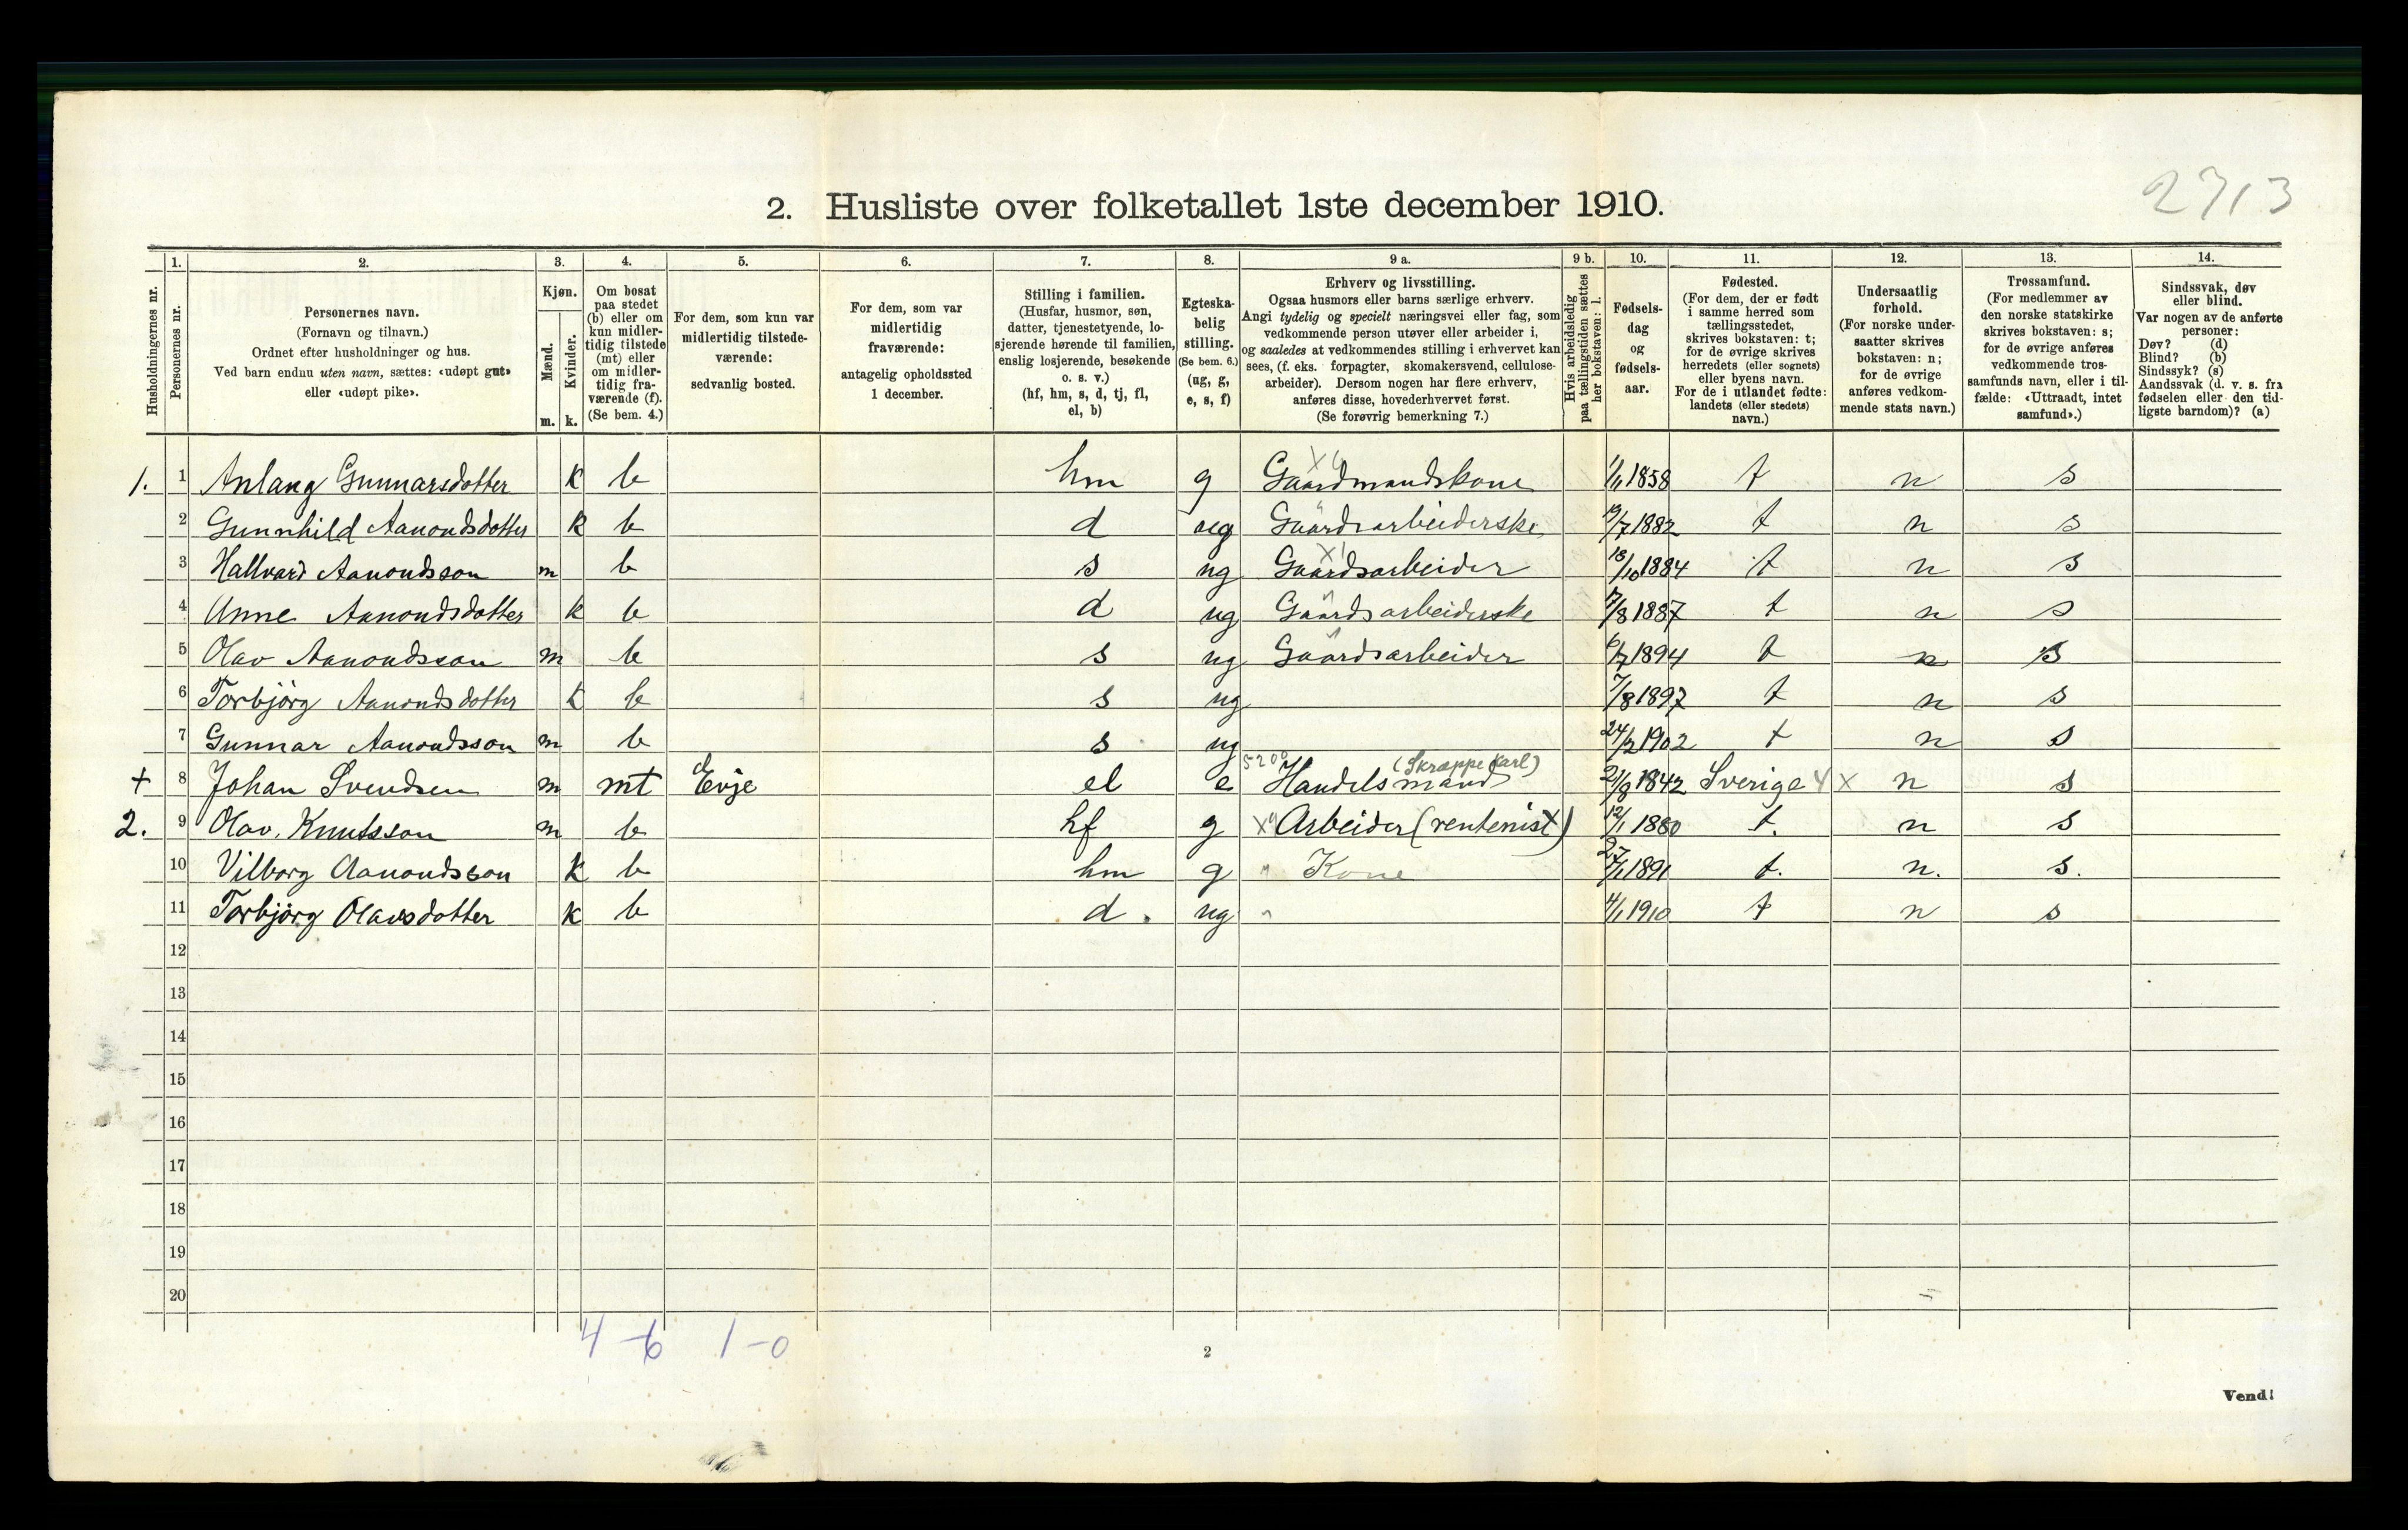 2713
2. Husliste over folketallet 1ste december 1910.
Husholdningernes nr.
1.
Personernes nr.
2.
Personernes navn.
(Fornavn og tilnavn.)
Ordnet efter husholdninger og hus.
Ved barn endnu uten navn, sættes: «udøpt gut»
eller «udøpt pike».
3.
Kjøn.
Mænd.
Kvinder.
m. k.
4.
Om bosat
paa stedet
(b) eller om
kun midler-
tidig tilstede
(mt) eller
om midler-
tidig fra-
værende (f).
(Se bem. 4.)
5.
For dem, som kun var
midlertidig tilstede-
værende:
sedvanlig bosted.
6.
For dem, som var
midlertidig
fraværende:
antagelig opholdssted
1 december.
7.
Stilling i familien.
(Husfar, husmor, søn,
datter, tjenestetyende, lo-
sjerende hørende til familien,
enslig losjerende, besøkende
o. s. v.)
(hf, hm, s, d, tj, fl,
el, b)
8.
Egteska-
belig
stilling.
(Se bem. 6.)
(ug, g,
e, s, f)
9 a.
Erhverv og livsstilling.
Ogsaa husmors eller barns særlige erhverv.
Angi tydelig og specielt næringsvei eller fag, som
vedkommende person utøver eller arbeider i,
og saaledes at vedkommendes stilling i erhvervet kan
sees, (f. eks. forpagter, skomakersvend, cellulose-
arbeider). Dersom nogen har flere erhverv,
anføres disse, hovederhvervet først.
(Se forøvrig bemerkning 7.)
9 b.
Hvis arbeidsledig
paa tællingstiden sættes
her bokstaven: l.
10.
Fødsels-
dag
og
fødsels-
aar.
11.
Fødested.
(For dem, der er født
i samme herred som
tællingsstedet,
skrives bokstaven: t;
for de øvrige skrives
herredets (eller sognets)
eller byens navn.
For de i utlandet fødte:
landets (eller stedets)
navn.)
12.
Undersaatlig
forhold.
(For norske under-
saatter skrives
bokstaven: n;
for de øvrige
anføres vedkom-
mende stats navn.)
13.
Trossamfund.
(For medlemmer av
den norske statskirke
skrives bokstaven: s;
for de øvrige anføres
vedkommende tros-
samfunds navn, eller i til-
fælde: «Uttraadt, intet
samfund».)
14.
Sindssvak, døv
eller blind.
Var nogen av de anførte
personer:
Døv? (d)
Blind? (b)
Sindssyk? (s)
Aandssvak (d. v. s. fra
fødselen eller den tid-
ligste barndom)? (a)
1. 1 Anlaug Gunnarsdotter k b hm g Gaardmandskone 1/1 1858 t n s
2 Gunnhild Aanondsdotter k b d ug Gaardsarbeiderske 1882 t n s
3 Hallvard Aanondsson m b s ug Gaardsarbeider 18/10 1884 t n s
4 Anne Aanondsdotter k b d ug Gaardsarbeiderske 7/8 1887 t n s
5 Olav Aanondsson m b s ug Gaardsarbeider 6/7 1894 t n s
6 Torbjörg Aanondsdotter k b s ug 7/8 1897 t n s
7 Gunnar Aanondsson m b s ug 24/2 1902 t n s
+ 8 Johan Svendsen m mt Evje el e 5200 Handelsmand (Skræppekarl) 21/8 1842 Sverige 4 x n s
2. 9 Olav Knutsson m b hf g Arbeider (rentenist) 12/1 1880 t. n s
10 Vilborg Aanondsson k b hm g " Kone 27/1 1891 t. n. s.
11 Torbjörg Olavsdotter k b d. ug " 4/1 1910 t n s
12
13
14
15
16
17
18
19
20
4-6 1-0
2
Vend!